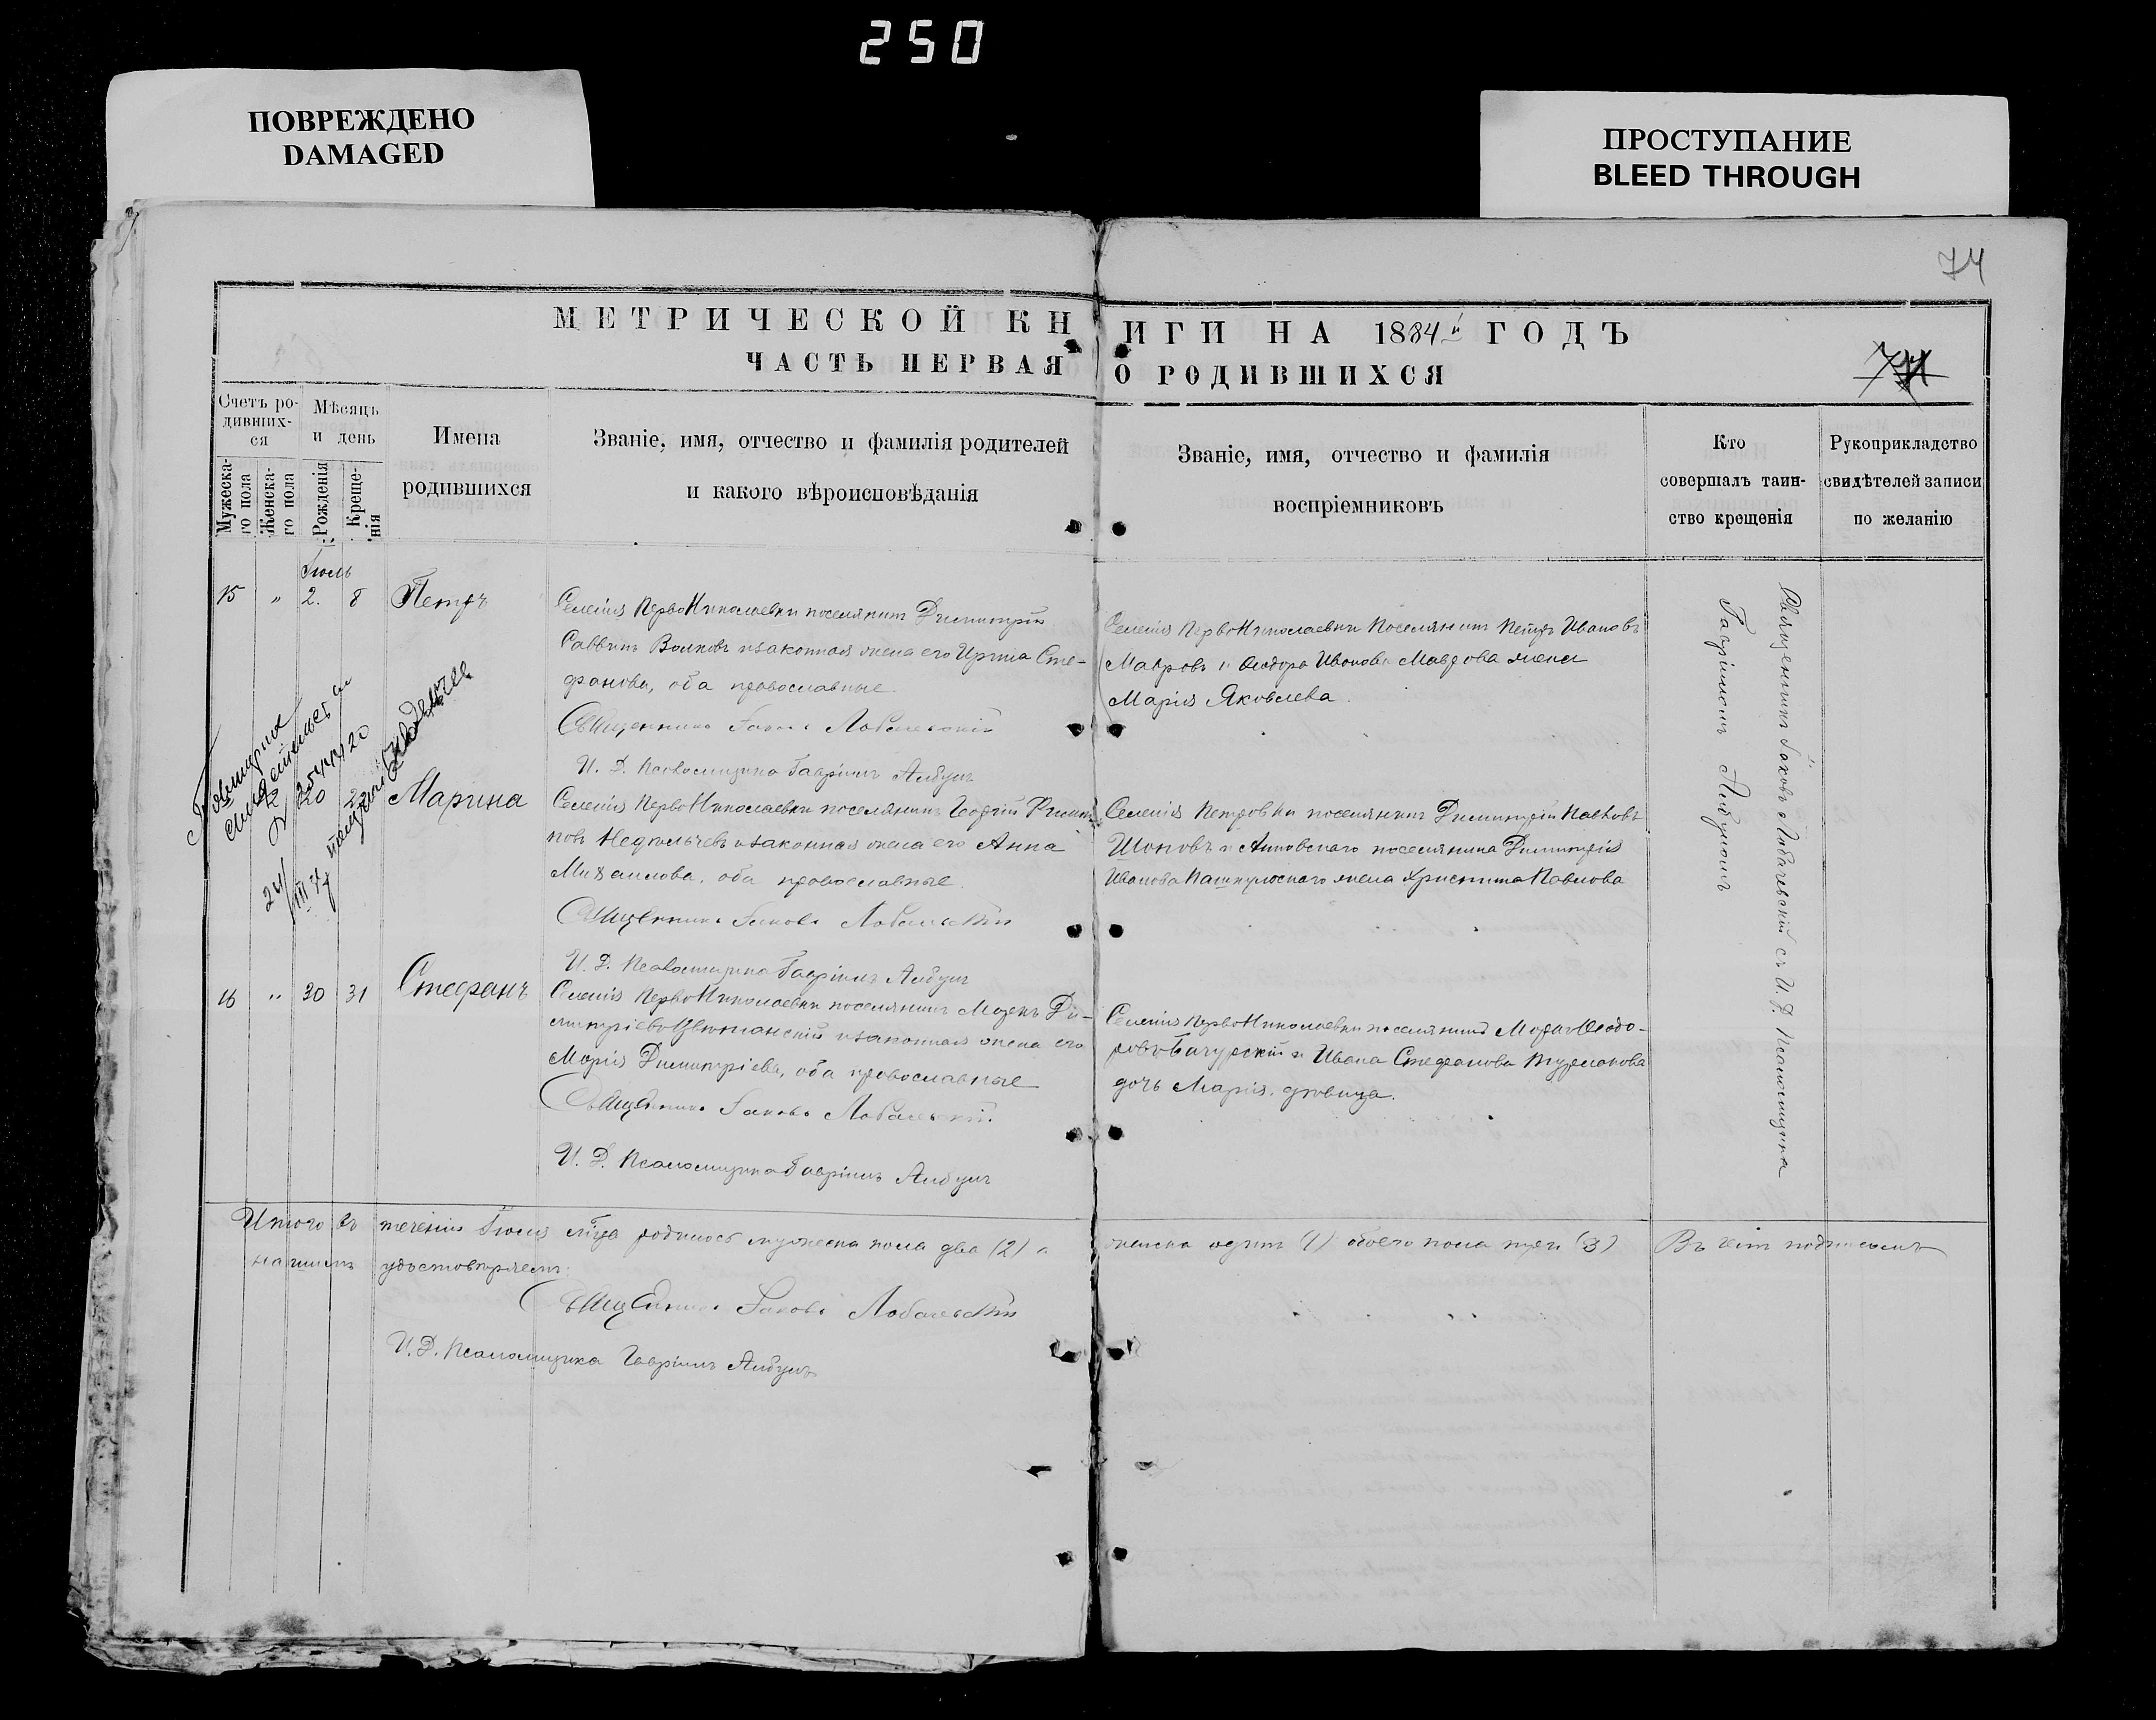 250
ПОВРЕЖДЕНО
DAMAGED
ПРОСТУПАНИЕ
BLEED THROUGH
74
МЕТРИЧЕСКОЙ КНИГИ НА 1884й ГОДЪ
ЧАСТЬ ПЕРВАЯ О РОДИВШИХСЯ
74
Счетъ ро-
дивших-
ся
Мужеска-
го пола
Женска-
го пола
Мѣсяцъ
и день
Рожденія
Креще-
нія
Имена
родившихся
Званіе, имя, отчество и фамилія родителей
и какого вѣроисповѣданія
Званіе, имя, отчество и фамилія
воспріемниковъ
Кто
совершалъ таин-
ство крещенія
Рукоприкладство
свидѣтелей записи
по желанію
Іюль
15 " 2. 8 Петръ
Селенія ПервоНиколаевки поселянинъ Димитрій
Саввинъ Волковъ и законная жена его Ирина Сте-
фанова, оба православные
Священникъ Іаковъ Лобачевскій
И. Д. Псаломщика Гавріилъ Албулъ
Селенія ПервоНиколаевки Поселянинъ Петръ Ивановъ
Мавровъ и Ѳеодора Иванова Маврова жена
Марія Яковлева.
Священникъ Іаковъ Лобачевскій съ И. Д. Псаломщика
Гавріиломъ Албуломъ
12 20 22 Марина
Селенія ПервоНиколаевки поселянинъ Георгій Филип
повъ Недѣльчевъ и законная жена его Анна
Михаилова, оба православные
Священникъ Іаковъ Лобачевскій
И. Д. Псаломщика Гавріилъ Албулъ
Селенія Петровки поселянинъ Димитрій Павловъ
Шоповъ и поселянина Димитрія
Иванова жена Христина Павлова
16 " 30 31 Стефанъ
Селенія ПервоНиколаевки поселянинъ Ди-
митріевъ и законная жена его
Марія Димитріева, оба православные
Священникъ Іаковъ Лобачевскій.
И. Д. Псаломщика Гавріилъ Албулъ
Селенія ПервоНиколаевки поселянинъ Ѳеодо-
ровъ и Ивана Стефанова
дочь Марія, дѣвица.
Итого въ теченіи Іюля м-ца родилось мужеска пола два (2) и женска одинъ (1) обоего пола три (3) Въ чемъ подписомъ
нашимъ удостовѣряемъ:
Священникъ Іаковъ Лобачевскій
И. Д. Псаломщика Гавріилъ Албулъ